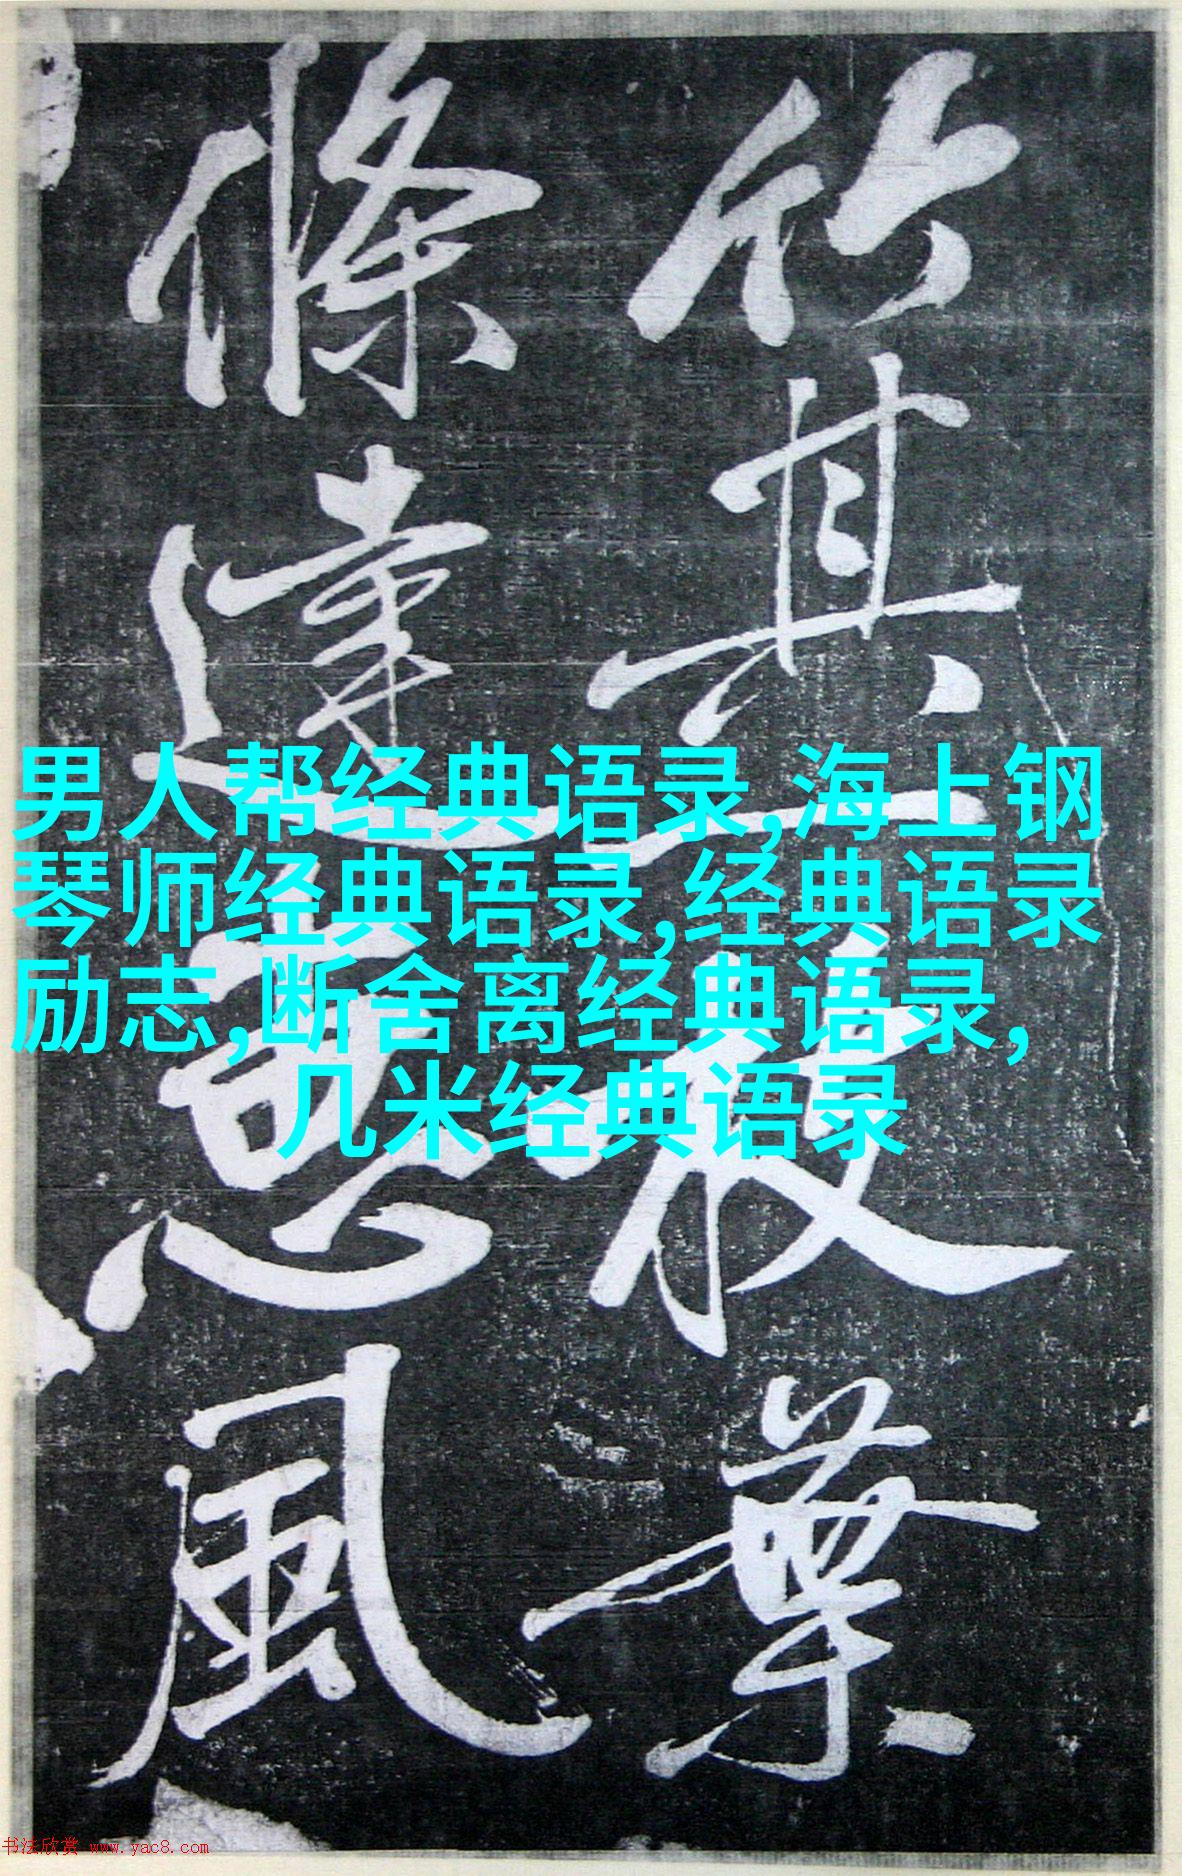 竹其枝葉
條達惠風
男人帮经典语录,海上钢
琴师经典语录,经典语录
励志,断舍离经典语录,
几米经典语录
书法欣赏 www.yac8.com